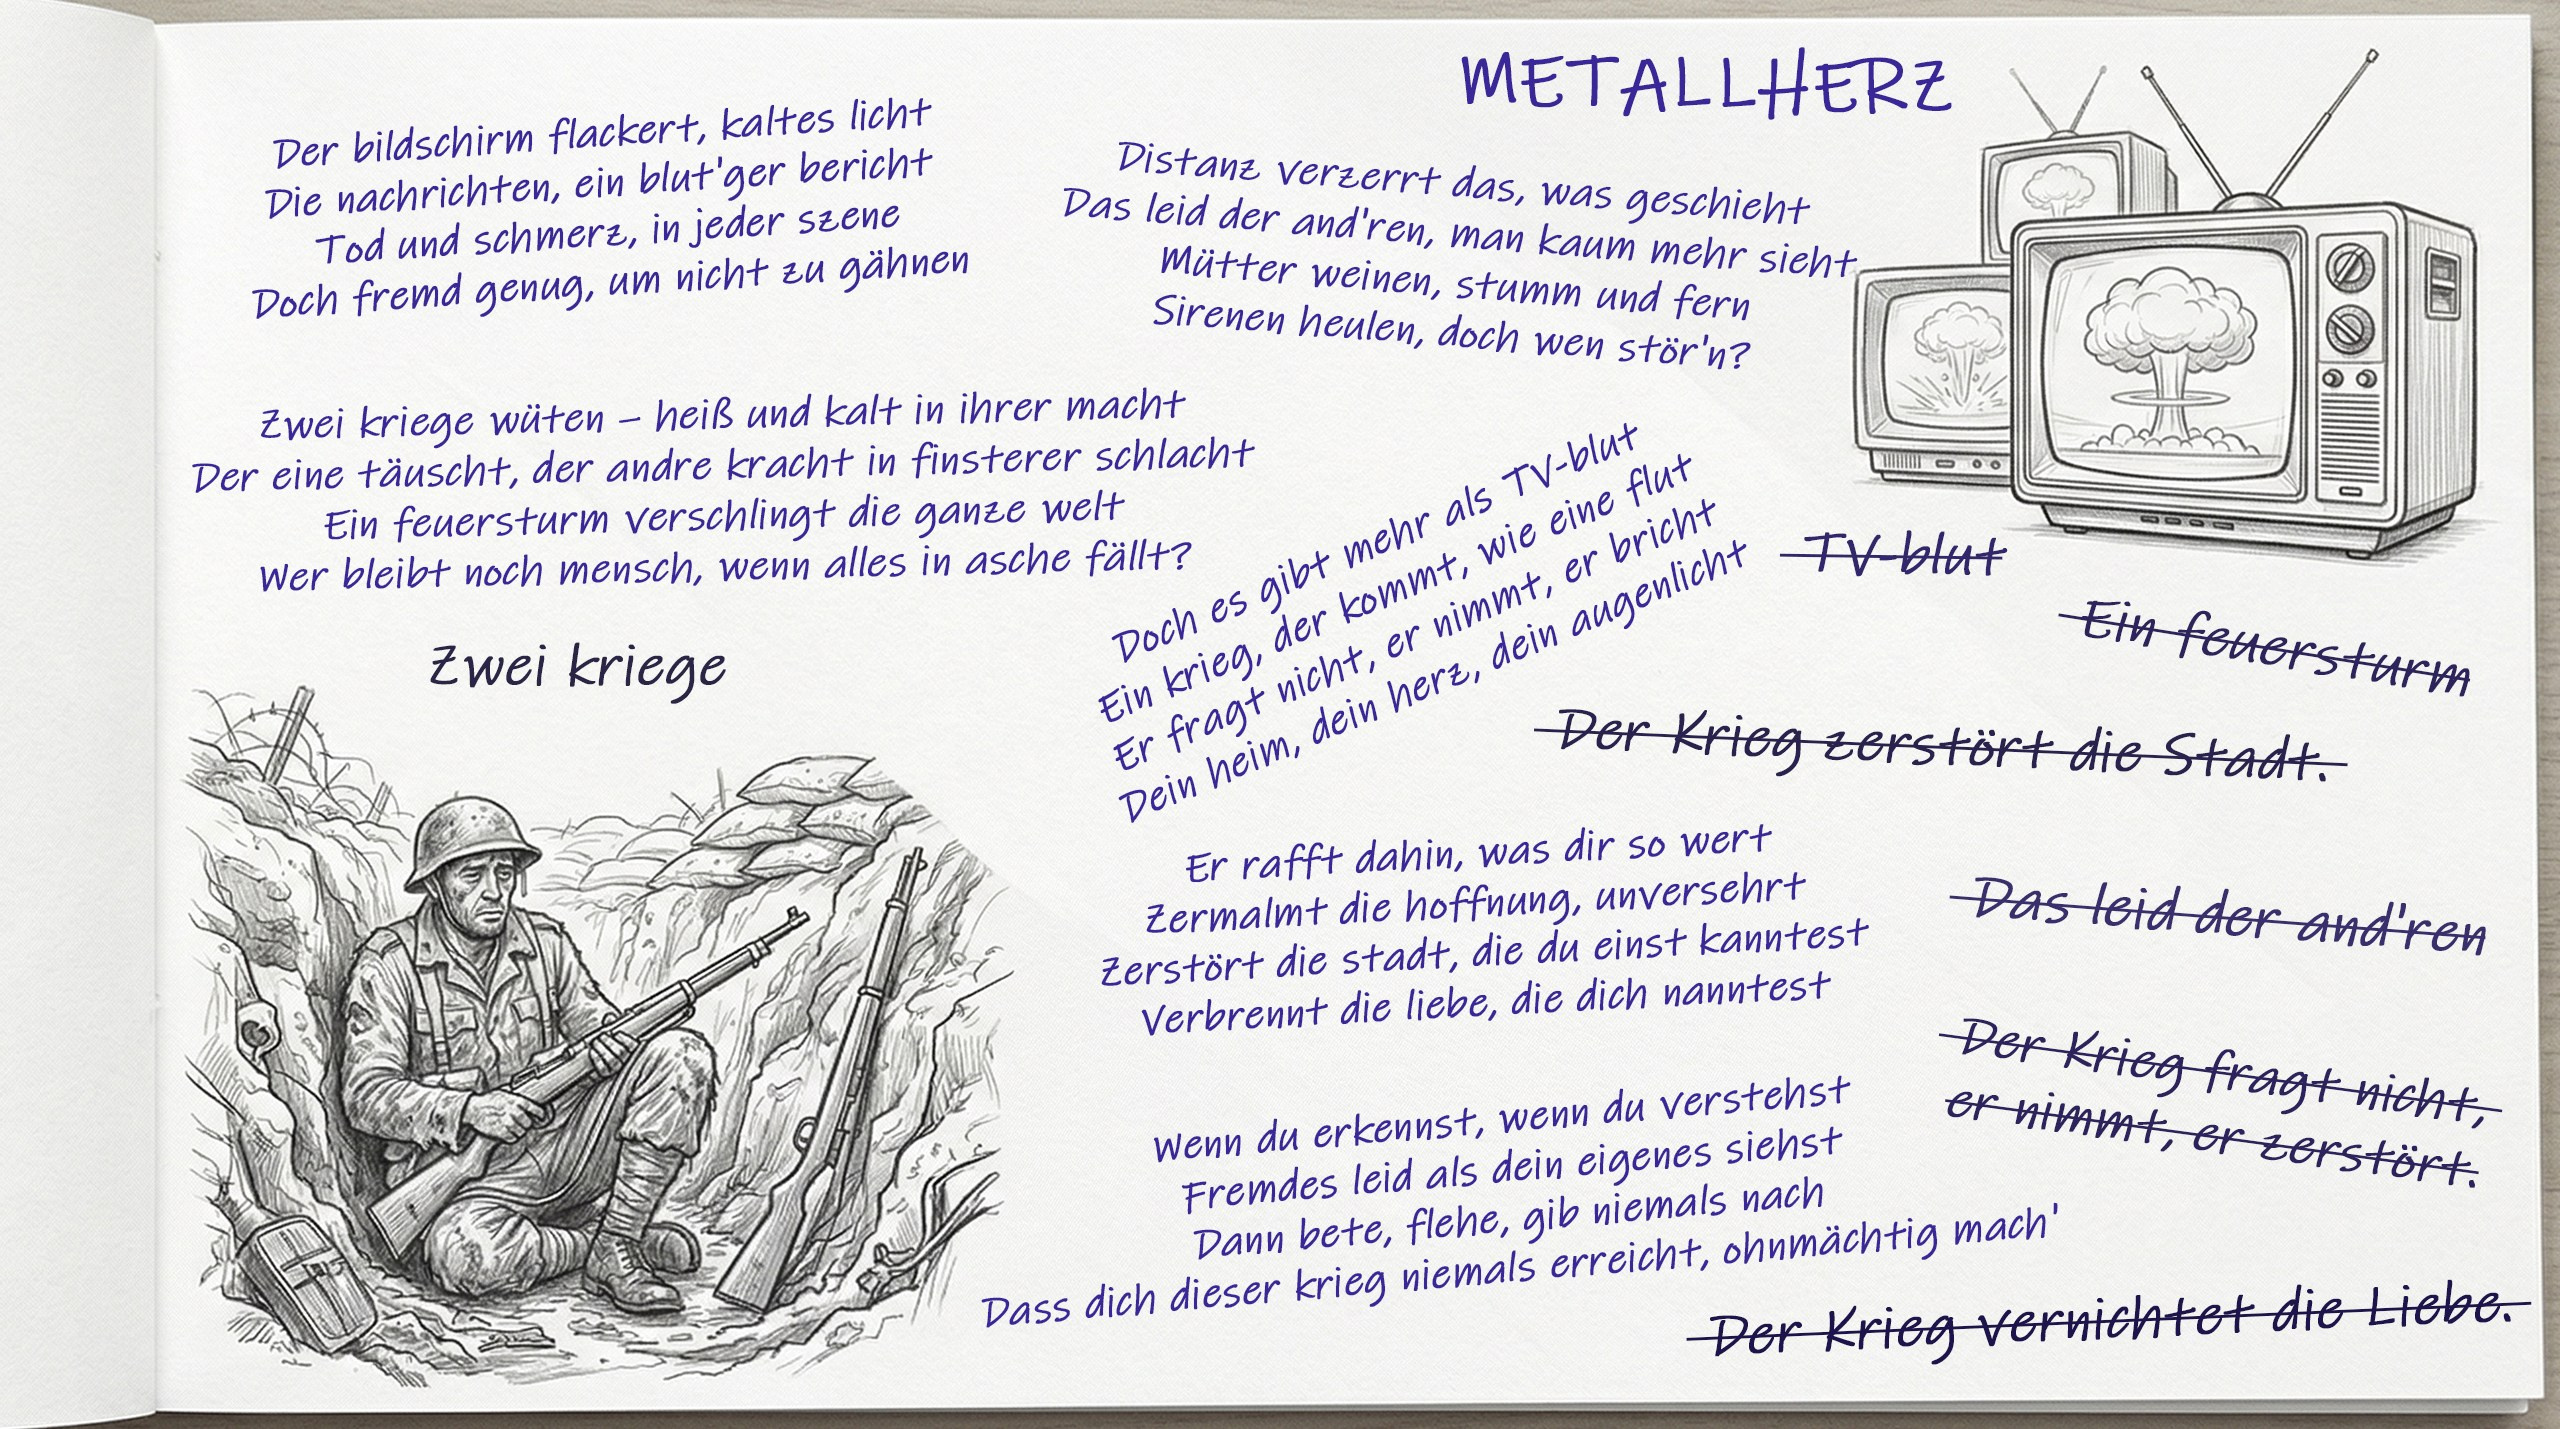 METALLHERZ
Der bildschirm flackert, kaltes licht
Die nachrichten, ein blut'ger bericht
Tod und schmerz, in jeder szene
Doch fremd genug, um nicht zu gähnen
Distanz verzerrt das, was geschieht
Das leid der and'ren, man kaum mehr sieht
Mütter weinen, stumm und fern
Sirenen heulen, doch wen stör'n?
Zwei kriege wüten – heiß und kalt in ihrer macht
Der eine täuscht, der andre kracht in finsterer schlacht
Ein feuersturm verschlingt die ganze welt
Wer bleibt noch mensch, wenn alles in asche fällt?
Zwei kriege
Doch es gibt mehr als TV-blut
Ein krieg, der kommt, wie eine flut
Er fragt nicht, er nimmt, er bricht
Dein heim, dein herz, dein augenlicht
Er rafft dahin, was dir so wert
Zermalmt die hoffnung, unversehrt
Zerstört die stadt, die du einst kanntest
Verbrennt die liebe, die dich nanntest
Wenn du erkennst, wenn du verstehst
Fremdes leid als dein eigenes siehst
Dann bete, flehe, gib niemals nach
Dass dich dieser krieg niemals erreicht, ohnmächtig mach'
TV-blut
Ein feuersturm
Der Krieg zerstört die Stadt.
Das leid der and'ren
Der Krieg fragt nicht,
er nimmt, er zerstört.
Der Krieg vernichtet die Liebe.